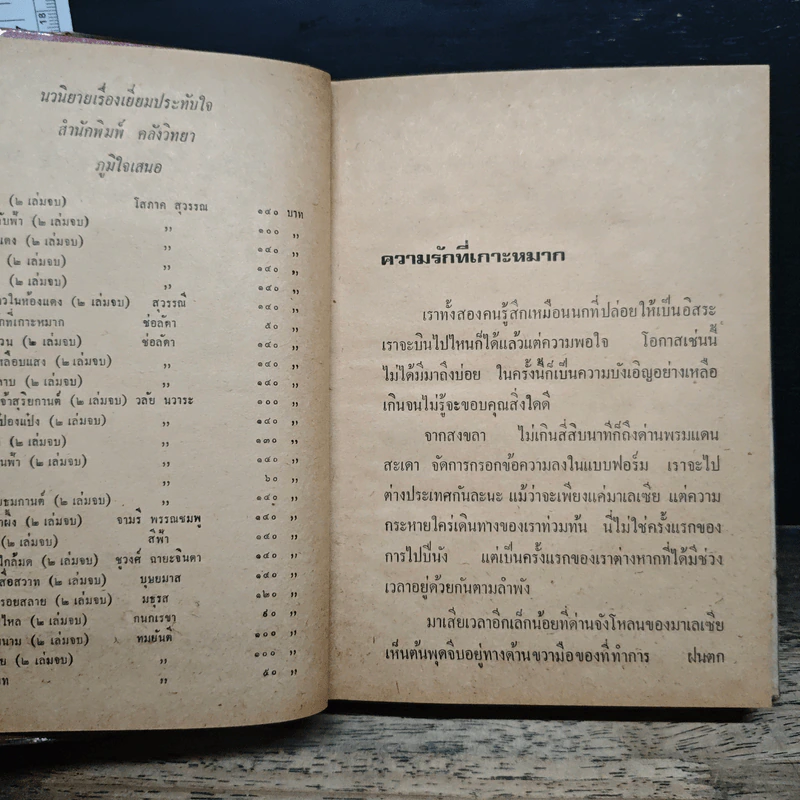 18
นวนิยายเรื่องเยี่ยมประทับใจ
สำนักพิมพ์ คลังวิทยา
ภูมิใจเสนอ
(๒ เล่มจบ) โสภาค สุวรรณ ๑๔๐ บาท
บฟ้า (๒ เล่มจบ) ,, ๑๐๐ ,,
แดง (๒ เล่มจบ) ,, ๑๔๐ ,,
(๒ เล่มจบ) ,, ๑๔๐ ,,
(๒ เล่มจบ) ,, ๑๔๐ ,,
วในห้องแดง (๒ เล่มจบ) สุวรรณี ๑๔๐ ,,
กที่เกาะหมาก ช่อลัดา ๕๐ ,,
วน (๒ เล่มจบ) ช่อลัดา ๑๔๐ ,,
หลือบแสง (๒ เล่มจบ) ,, ๑๔๐ ,,
ลาบ (๒ เล่มจบ) ,, ๑๔๐ ,,
จ้าสุริยกานต์ (๒ เล่มจบ) วลัย นวาระ ๑๐๐ ,,
ป่องแป้ง (๒ เล่มจบ) ,, ๑๔๐ ,,
(๒ เล่มจบ) ,, ๑๓๐ ,,
นฟ้า (๒ เล่มจบ) ,, ๑๔๐ ,,
,, ๖๐ ,,
ชมกานต์ (๒ เล่มจบ) ,, ๑๔๐ ,,
าผึ้ง (๒ เล่มจบ) จามรี พรรณชมพู ๑๔๐ ,,
(๒ เล่มจบ) สีฟ้า ๑๔๐ ,,
ใกล้มด (๒ เล่มจบ) ชูวงศ์ ฉายะจินดา ๑๔๐ ,,
สื่อสวาท (๒ เล่มจบ) บุษยมาส ๑๔๐ ,,
รอยสลาย (๒ เล่มจบ) มธุรส ๑๒๐ ,,
ไหล (๒ เล่มจบ) กนกเรขา ๙๐ ,,
นาม (๒ เล่มจบ) ทมยันตี ๑๐๐ ,,
ย (๒ เล่มจบ) ,, ๑๐๐ ,,
ท ,, ๕๐ ,,
ความรักที่เกาะหมาก
เราทั้งสองคนรู้สึกเหมือนนกที่ปล่อยให้เป็นอิสระ
เราจะบินไปไหนก็ได้แล้วแต่ความพอใจ โอกาสเช่นนี้
ไม่ได้มีมาถึงบ่อย ในครั้งนี้ก็เป็นความบังเอิญอย่างเหลือ
เกินจนไม่รู้จะขอบคุณสิ่งใดดี
จากสงขลา ไม่เกินสี่สิบนาทีก็ถึงด่านพรมแดน
สะเดา จัดการกรอกข้อความลงในแบบฟอร์ม เราจะไป
ต่างประเทศกันละนะ แม้ว่าจะเพียงแค่มาเลเซีย แต่ความ
กระหายใคร่เดินทางของเราท่วมท้น นี่ไม่ใช่ครั้งแรกของ
การไปปีนัง แต่เป็นครั้งแรกของเราต่างหากที่ได้มีช่วง
เวลาอยู่ด้วยกันตามลำพัง
มาเสียเวลาอีกเล็กน้อยที่ด่านจังโหลนของมาเลเซีย
เห็นต้นพุดจีบอยู่ทางด้านขวามือของที่ทำการ ฝนตก